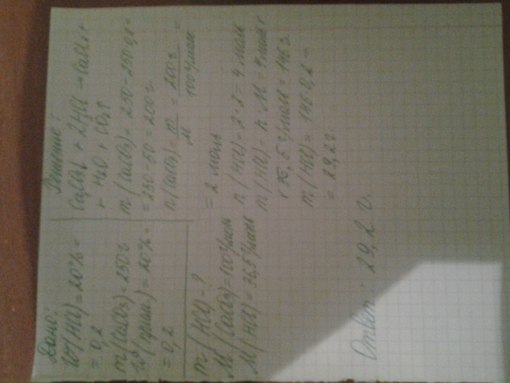 Дано:
W(HCl) = 20% =
= 0,2
m(CaCO₃) = 250 г
W(прим) = 20% =
= 0,2
m(HCl) - ?
M(CaCO₃) = 100 г/моль
M(HCl) = 36,5 г/моль
Решение:
CaCO₃ + 2HCl → CaCl₂ +
+ H₂O + CO₂↑
m(CaCO₃) = 250 - 250·0,2 =
= 250 - 50 = 200 г.
n(CaCO₃) = m/M = 200 г/100 г/моль
= 2 моль
n(HCl) = 2·2 = 4 моль
m(HCl) = n·M = 4 моль ·
· 36,5 г/моль = 146 г
m(HCl) = 146·0,2 =
= 29,2 г.
Ответ: 29,2 г.